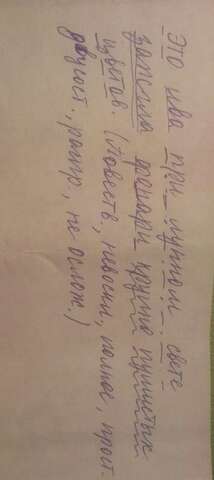 Это ива при лунном свете
зажгла фонари крупно пушистых
цветов. (Повеств, невоскл, полное, прост.
двусост., распр, не ослож.)